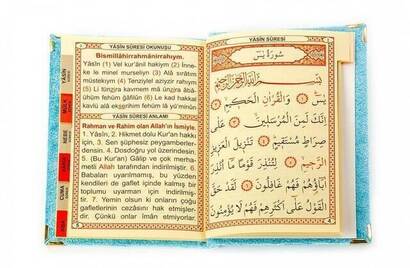 YÂSÎN SÛRESİ OKUNUŞU
Bismillâhirrahmânirrahıym.
Yâsîn (1) Vel kur'ânil hakiym (2) İnne-
ke le minel murseliyn (3) Alâ sırâtım
müstekiym (4) Tenziylel aziyzir rahiym
(5) Li tünzira kavmem mâ ünzira âbâ-
ühüm fehüm ğâfilûn (6) Le kad hakkal
kavlü alâ ekserihim fehüm lâ yü'minûn
YÂSÎN SÛRESİ ANLAMI
Rahman ve Rahim olan Allah'ın İsmiyle.
1. Yâsîn, 2. Hikmet dolu Kur'an hakkı
için, 3. Sen şüphesiz peygamberler-
densin. 4. Dosdoğru yol üzerindesin.
5. (Bu Kur'an) Gâlip ve çok merha-
metli Allah tarafından indirilmiştir. 6.
Babaları uyarılmamış, bu yüzden
kendileri de gaflet içinde kalmış bir
toplumu uyarman için indirilmiş-
tir. 7. Yemin olsun ki onların çoğu
gafletlerinin cezasını hak etmişler-
dir. Çünkü onlar îmân etmiyorlar.
YÂSÎN
MÜLK
NEBE
CUMA
YÂSÎN SÛRESİ
سُورَةُ يٰسٓ
بِسْمِ اللّٰهِ الرَّحْمٰنِ الرَّحِيمِ
يٰسٓ ﴿١﴾ وَالْقُرْاٰنِ الْحَكِيمِ ﴿٢﴾
اِنَّكَ لَمِنَ الْمُرْسَلِينَ ﴿٣﴾ عَلٰى
صِرَاطٍ مُسْتَقِيمٍ ﴿٤﴾ تَنْزِيلَ الْعَزِيزِ
الرَّحِيمِ ﴿٥﴾ لِتُنْذِرَ قَوْمًا مَٓا اُنْذِرَ
اٰبَٓاؤُهُمْ فَهُمْ غَافِلُونَ ﴿٦﴾ لَقَدْ حَقَّ
الْقَوْلُ عَلٰٓى اَكْثَرِهِمْ فَهُمْ لَا يُؤْمِنُونَ